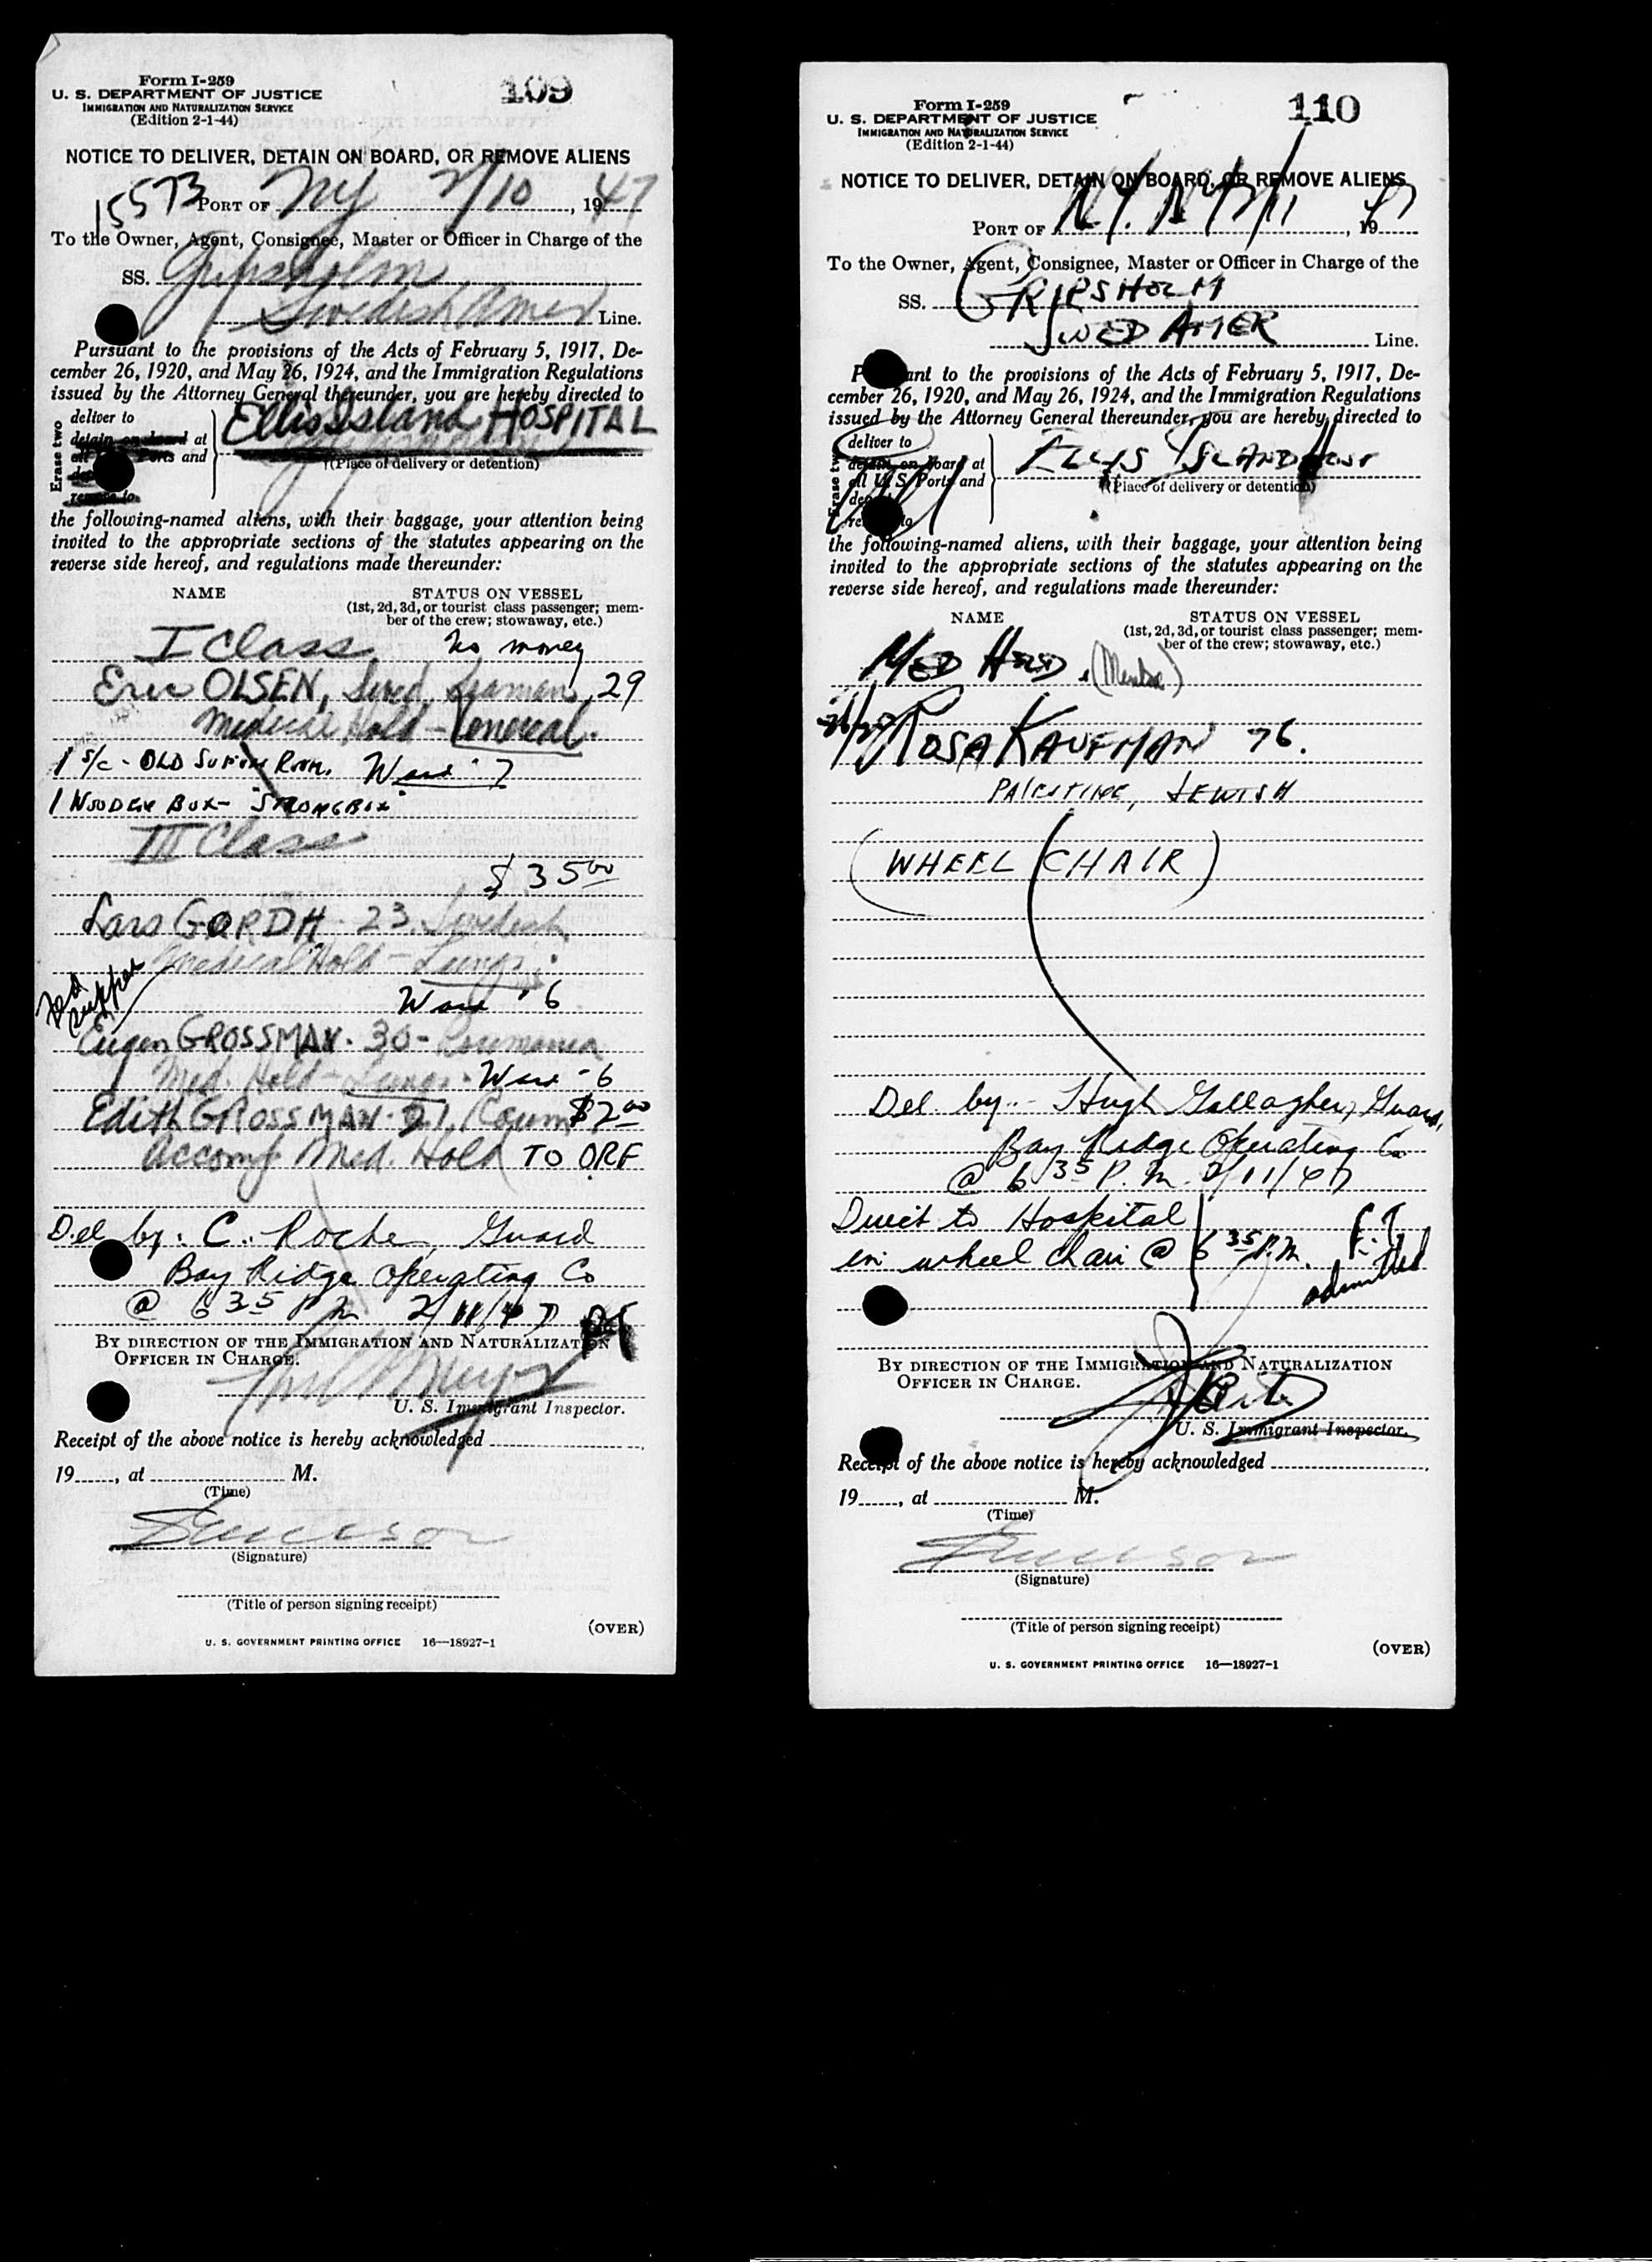 Form I-259
U. S. DEPARTMENT OF JUSTICE
IMMIGRATION AND NATURALIZATION SERVICE
(Edition 2-1-44)
109
NOTICE TO DELIVER, DETAIN ON BOARD, OR REMOVE ALIENS
15573 PORT OF NY 2/10, 1947
To the Owner, Agent, Consignee, Master or Officer in Charge of the
SS. Gripsholm
Swedish Amer Line.
Pursuant to the provisions of the Acts of February 5, 1917, De-
cember 26, 1920, and May 26, 1924, and the Immigration Regulations
issued by the Attorney General thereunder, you are hereby directed to
Erase two
deliver to
detain on board at
all Ports and
remove to
Ellis Island HOSPITAL
(Place of delivery or detention)
the following-named aliens, with their baggage, your attention being
invited to the appropriate sections of the statutes appearing on the
reverse side hereof, and regulations made thereunder:
NAME STATUS ON VESSEL
(1st, 2d, 3d, or tourist class passenger; mem-
ber of the crew; stowaway, etc.)
I Class no money
Eric OLSEN, Swed. Seaman, 29
Medical Hold - Venereal.
1 S/C - OLD Ward 7
1 WOODEN BOX - "STRONGBOX"
III Class
$ 35 00
Lars GARDH - 23. Swedish
Medical Hold - Lungs.
Ward 6
Had supper
Eugen GROSSMAN. 30 - Roumania
Med. Hold - Lungs. Ward - 6
Edith GROSSMAN. 21, Roum $2 00
Accomp Med. Hold TO ORF
Del by: C. Roche, Guard
Bay Ridge Operating Co
@ 6 35 PM 2/11/47
BY DIRECTION OF THE IMMIGRATION AND NATURALIZATION
OFFICER IN CHARGE.
U. S. Immigrant Inspector.
Receipt of the above notice is hereby acknowledged
19, at M.
(Time)
(Signature)
(Title of person signing receipt)
(OVER)
U. S. GOVERNMENT PRINTING OFFICE 16—18927-1
Form I-259
U. S. DEPARTMENT OF JUSTICE
IMMIGRATION AND NATURALIZATION SERVICE
(Edition 2-1-44)
110
NOTICE TO DELIVER, DETAIN ON BOARD, OR REMOVE ALIENS
PORT OF N.Y. N.Y. 2/11, 1947
To the Owner, Agent, Consignee, Master or Officer in Charge of the
SS. GRIPSHOLM
SWED AMER Line.
Pursuant to the provisions of the Acts of February 5, 1917, De-
cember 26, 1920, and May 26, 1924, and the Immigration Regulations
issued by the Attorney General thereunder, you are hereby directed to
Erase two
deliver to
detain on board at
all U. S. Ports and
remove to
ELLIS ISLAND HOSP
(Place of delivery or detention)
the following-named aliens, with their baggage, your attention being
invited to the appropriate sections of the statutes appearing on the
reverse side hereof, and regulations made thereunder:
NAME STATUS ON VESSEL
(1st, 2d, 3d, or tourist class passenger; mem-
ber of the crew; stowaway, etc.)
MED HOLD.
ROSA KAUFMAN 76.
PALESTINE, JEWISH
(WHEEL CHAIR)
Del. by - Hugh Gallagher, Guard,
Bay Ridge Operating Co
@ 6 35 P.M. 2/11/47
Direct to Hospital
in wheel chair @ 6 35 P.M.
admitted
BY DIRECTION OF THE IMMIGRATION AND NATURALIZATION
OFFICER IN CHARGE.
U. S. Immigrant Inspector.
Receipt of the above notice is hereby acknowledged
19, at M.
(Time)
(Signature)
(Title of person signing receipt)
(OVER)
U. S. GOVERNMENT PRINTING OFFICE 16—18927-1